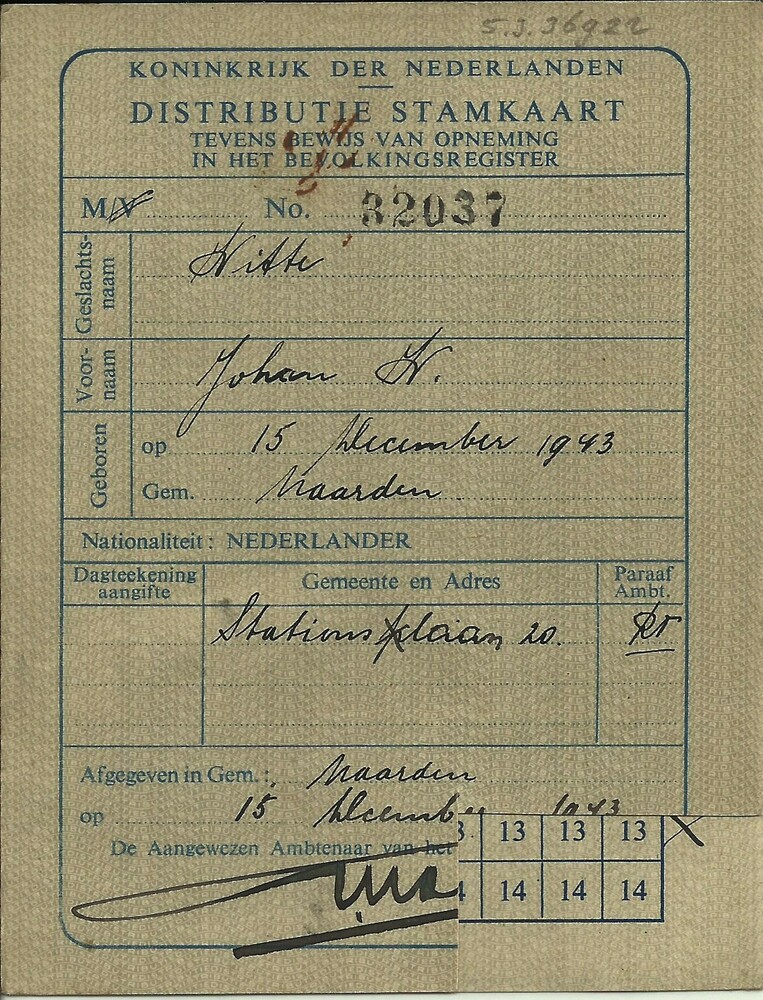 5.3.36922
KONINKRIJK DER NEDERLANDEN
DISTRIBUTIE STAMKAART
TEVENS BEWIJS VAN OPNEMING
IN HET BEVOLKINGSREGISTER
M/V No. 32037
Geslachts-
naam
Witte
Voor-
naam
Johan W.
Geboren
op 15 December 1943
Gem. Naarden
Nationaliteit: NEDERLANDER
Dagteekening
aangifte
Gemeente en Adres
Paraaf
Ambt.
Stationslaan 20.
Afgegeven in Gem.: Naarden
op 15 Decemb 1943
De Aangewezen Ambtenaar van het
13 13 13
14 14 14